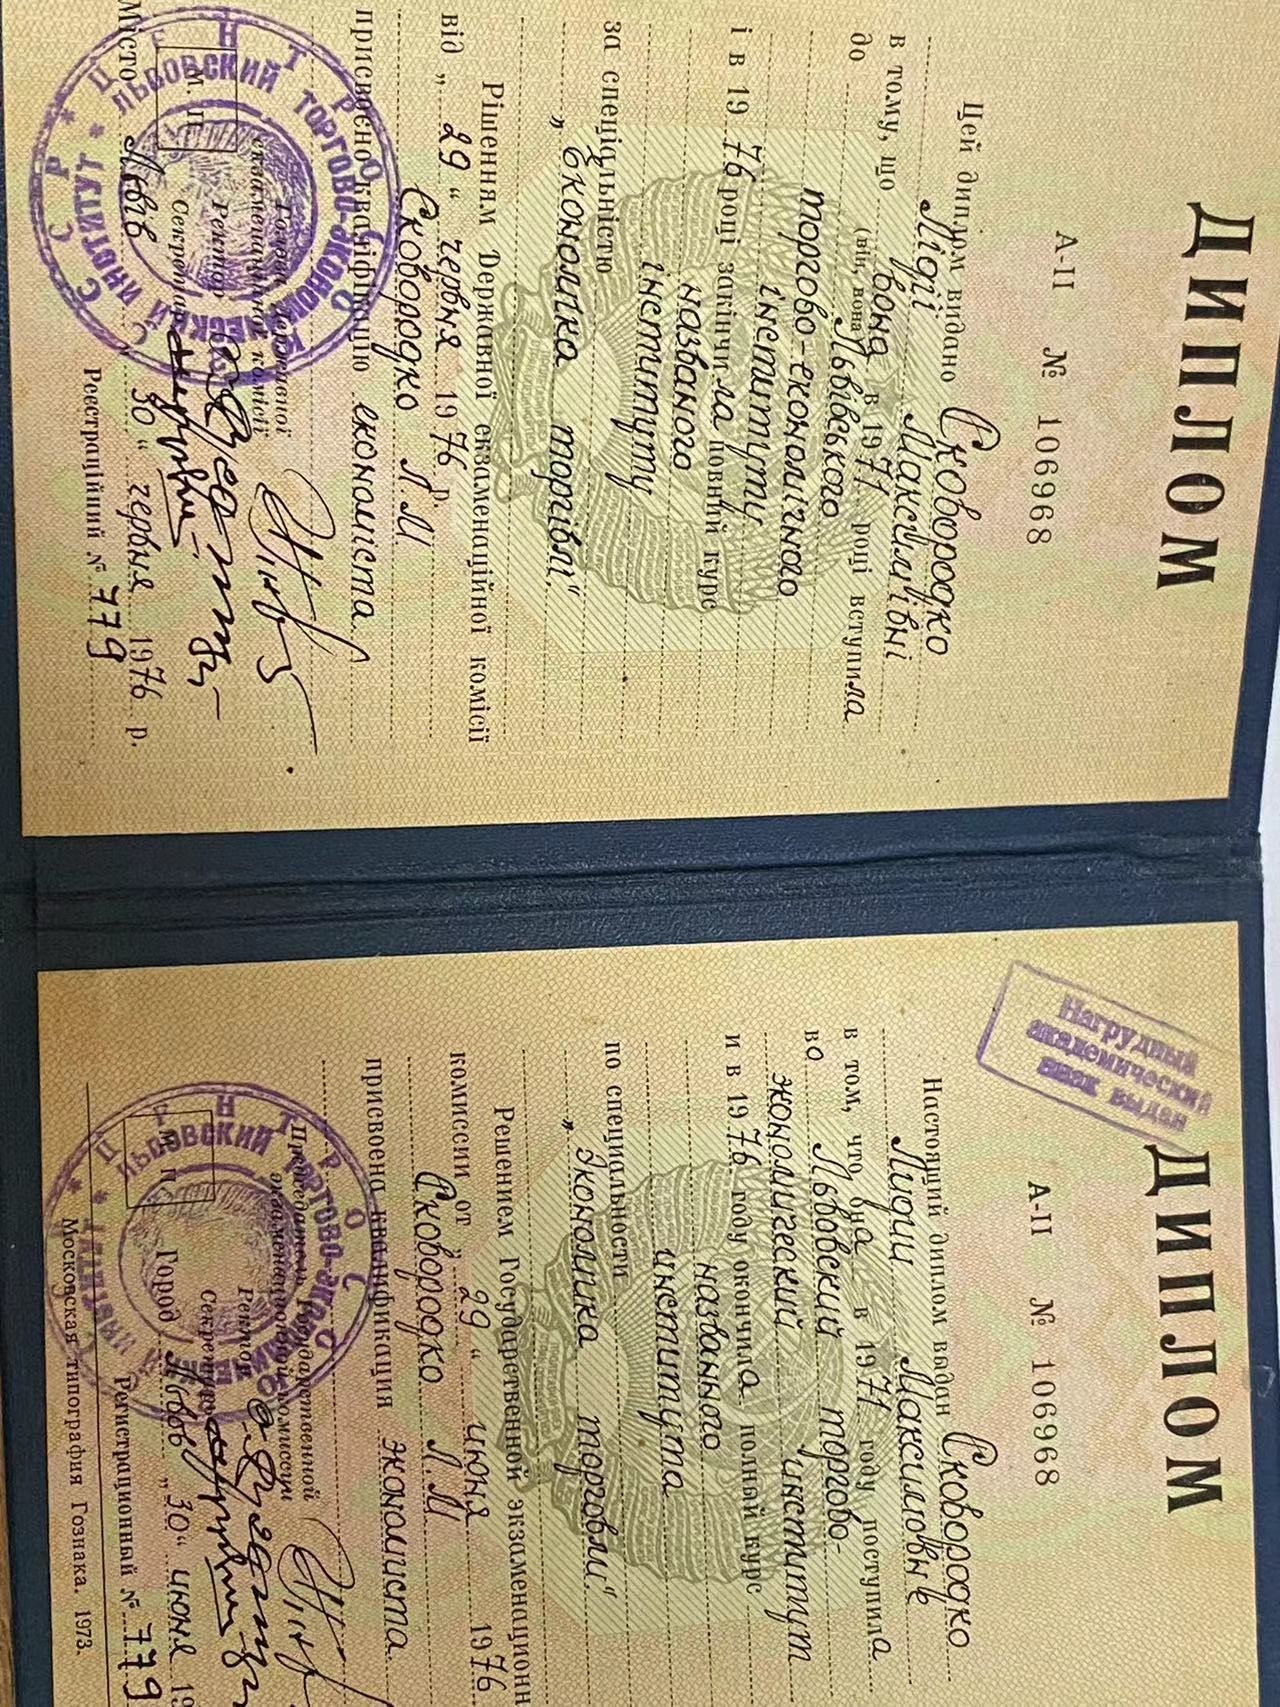 ДИПЛОМ
А-II № 106968
Цей диплом видано Сковородко
Лідії Максимівні
в тому, що вона в 1971 році вступила
(він, вона)
до Львівського
торгово-економічного
інституту
і в 1976 році закінчила повний курс
названого
інституту
за спеціальністю
„Економіка торгівлі".
Рішенням Державної екзаменаційної комісії
від „29" червня 1976 р.
Сковородко Л.М
присвоєно кваліфікацію економіста.
Голова Державної
екзаменаційної комісії
Ректор
Секретар
М. П.
Місто Львів „30" червня 1976 р.
Реєстраційний № 779
ЦЕНТРОСОЮЗ СССР
ЛЬВОВСКИЙ ТОРГОВО-ЭКОНОМИЧЕСКИЙ ИНСТИТУТ
Нагрудный
академический
знак выдан
ДИПЛОМ
А-II № 106968
Настоящий диплом выдан Сковородко
Лидии Максимовне
в том, что она в 1971 году поступила
во Львовский торгово-
экономический институт
и в 1976 году окончила полный курс
названного
института
по специальности
„Экономика торговли".
Решением Государственной экзаменационн
комиссии от „29" июня 1976
Сковородко Л.М
присвоена квалификация экономиста.
Председатель Государственной
экзаменационной комиссии
Ректор
Секретарь
М. П.
Город Львов „30" июня 19
Регистрационный № 779
Московская типография Гознака. 1973.